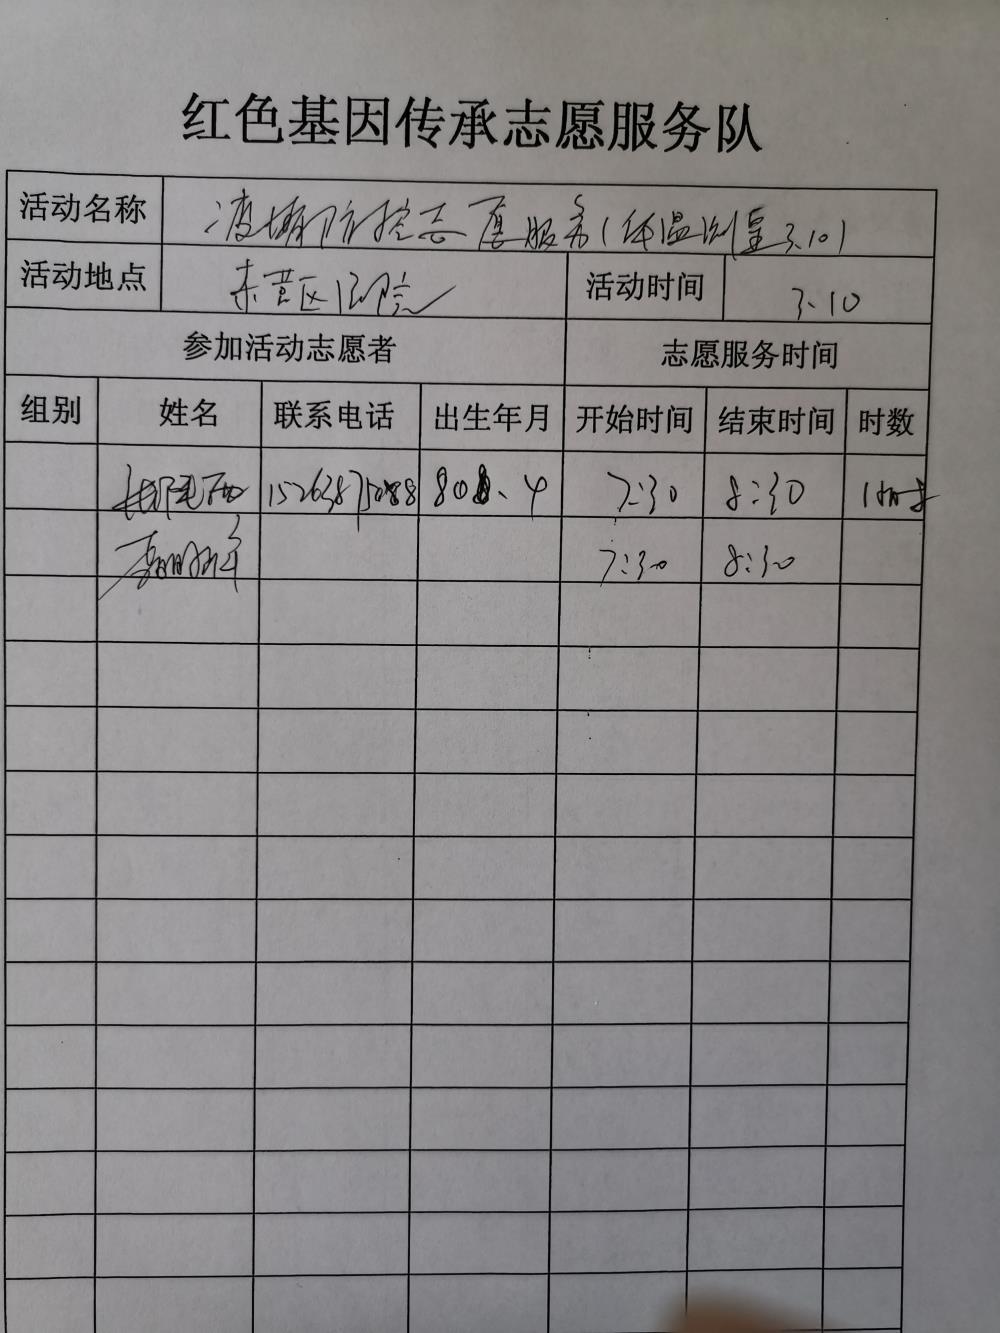 红色基因传承志愿服务队
活动名称 疫情防控志愿服务(体温测量3.10)
活动地点 东营区法院 活动时间 3.10
参加活动志愿者 志愿服务时间
组别 姓名 联系电话 出生年月 开始时间 结束时间 时数
7:30 8:30 1小时
7:30 8:30